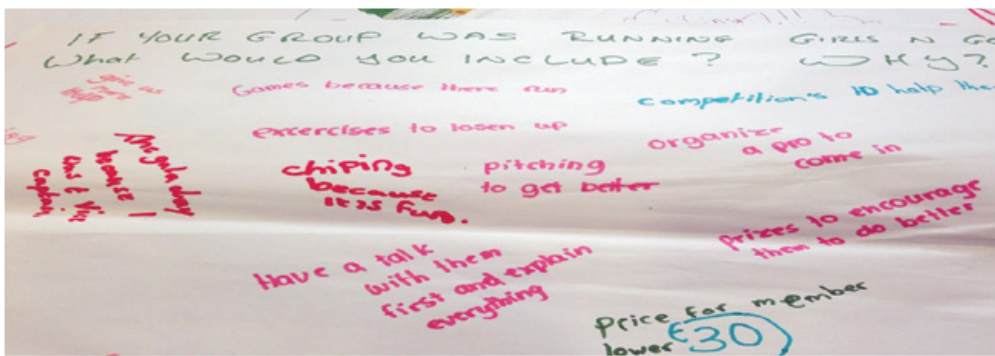 IF YOUR GROUP WAS RUNNING GIRLS N GO
What WOULD YOU INCLUDE ? WHY?
give us
more
Games because there fun
competition's to help the
excercises to losen up
organize
a pro to
come in
The gala day
because I
was a Vic
Captain
chiping
because
it is fun.
pitching
to get better
prizes to encourage
them to do better
Have a talk
with them
first and explain
everything
Price for member
lower £30